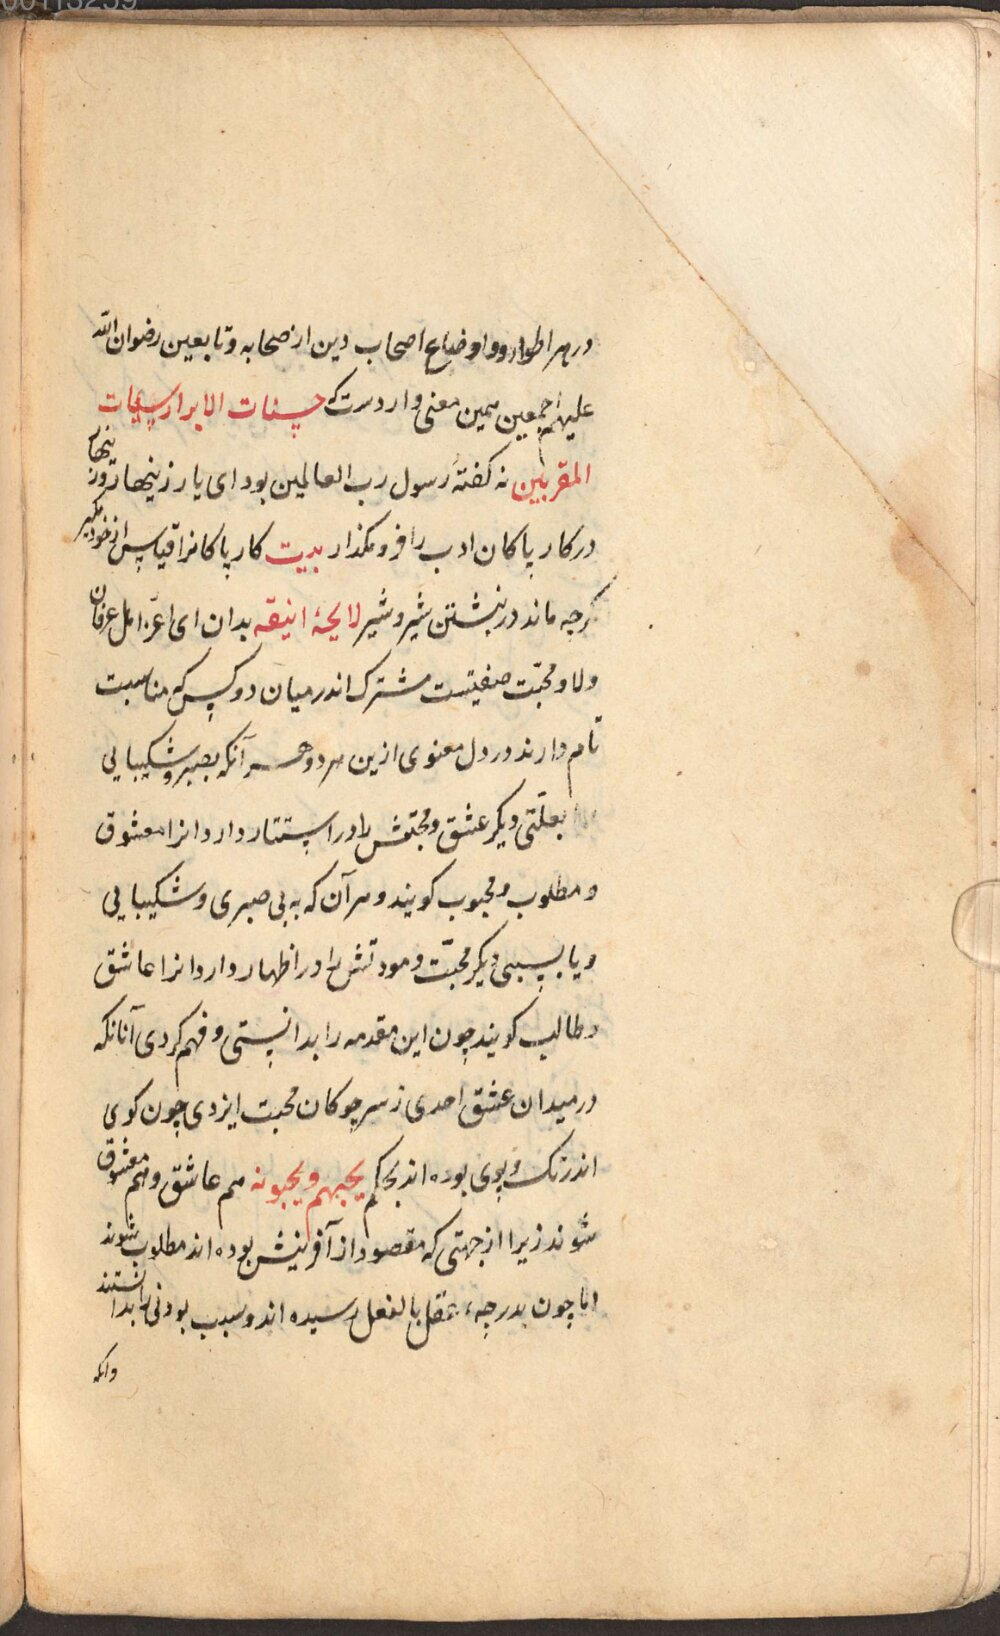 00113259
در هر اطوار و اوضاع اصحاب دین از صحابه و تابعین رضوان الله
علیهم اجمعین همین معنی واردست که حسنات الابرار سیئات
المقربین نه کفتهٔ رسول رب العالمین بود ای یار زینهار و زینهار
در کار پاکان ادب را فرو مکذار بیت کار پاکانرا قیاس از خود مکیر
کرچه ماند در نبشتن شیر و شیر لایحهٔ انیقه بدان ای اعز اهل عرفان
ولا و محبّت صفتیست مشترک اندر میان دو کس که مناسبت
تام دارند در دل معنوی ازین هر دو هر آنکه بصبر و شکیبایی
بعلّتی دیکر عشق و محبتش را در استتار دارد انرا معشوق
و مطلوب و محبوب کویند و هر آن که به بی صبری و شکیبایی
و یا بسببی دیکر محبّت و مودتش را در اظهار دارد انرا عاشق
و طالب کویند چون این مقدمه را بدانستی و فهم کردی آنانکه
در میدان عشق احدی ز سر چوکان محبت ایزدی چون کوی
اندر تک و پوی بوده اند بحکم یحبهم و یحبونه هم عاشق و هم معشوق
شوند زیرا از جهتی که مقصود از آفرینش بوده اند مطلوب شوند
اما چون بدرجهٔ عقل بالفعل رسیده اند و سبب بودنی را بدانستند
وانکه